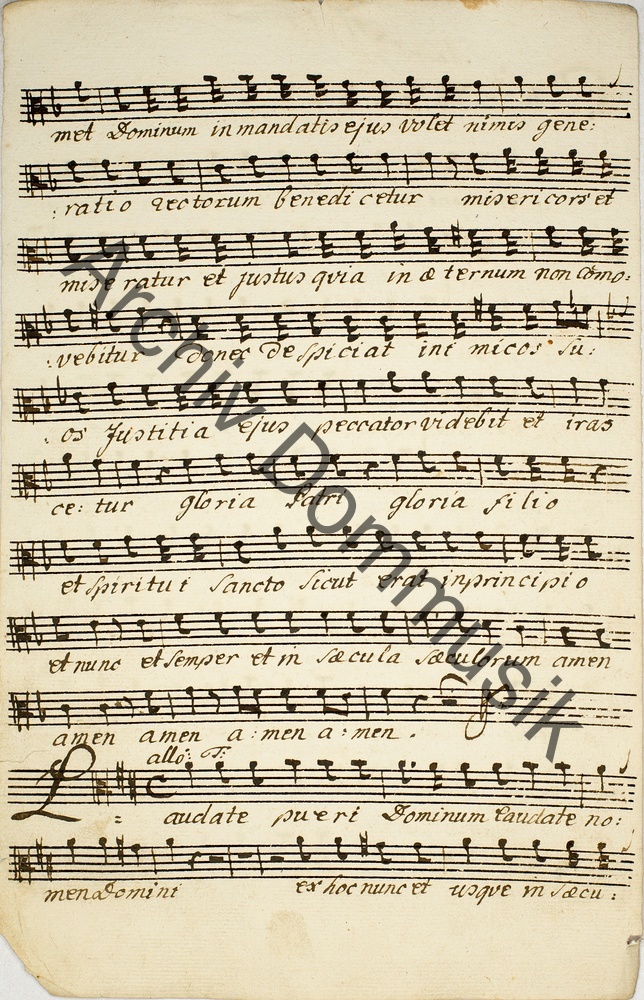 met Dominum in mandatis ejus volet nimis gene:
: ratio rectorum benedicetur misericors et
mise ratur et justus qvia in æ ternum non como:
: vebitur donec despiciat ini micos su:
: os Justitia ejus peccator videbit et iras
ce: tur gloria Patri gloria filio
et Spiritui Sancto Sicut erat in principio
et nunc et Semper et in Sæcula Sæculorum amen
amen amen a: men a: men.
allo: T:
Laudate pueri Dominum Laudate no:
men Domini ex hoc nunc et usqve in Sæcu:
Archiv Dommusik